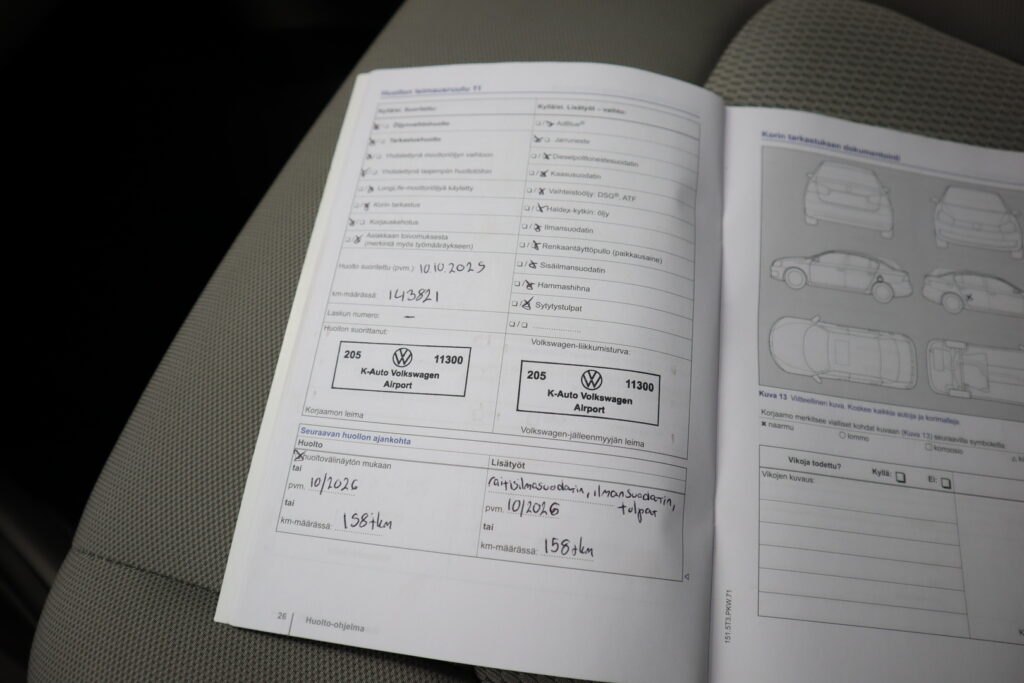 Huollon leimausruutu 11
Kyllä/ei: Suoritettu:
☒/☐ Öljynvaihtohuolto
☒/☐ Tarkastushuolto
☒/☐ Yhdistettynä moottoriöljyn vaihtoon
☒/☐ Yhdistettynä laajempiin huoltotöihin
☐/☒ LongLife-moottoriöljyä käytetty
☐/☒ Korin tarkastus
☒/☐ Korjauskehotus
☐/☒ Asiakkaan toivomuksesta
(merkintä myös työmääräykseen)
Huolto suoritettu (pvm.) 10.10.2025
km-määrässä: 143821
Laskun numero: –
Huollon suorittanut:
205 11300
K-Auto Volkswagen
Airport
Korjaamon leima
Kyllä/ei: Lisätyöt – vaihto:
☐/☒ AdBlue®
☒/☐ Jarruneste
☐/☒ Dieselpolttonestesuodatin
☐/☒ Kaasusuodatin
☐/☒ Vaihteistoöljy: DSG®, ATF
☐/☒ Haldex-kytkin: öljy
☐/☒ Ilmansuodatin
☐/☒ Renkaantäyttöpullo (paikkausaine)
☐/☒ Sisäilmansuodatin
☐/☒ Hammashihna
☐/☒ Sytytystulpat
☐/☐
Volkswagen-liikkumisturva:
205 11300
K-Auto Volkswagen
Airport
Volkswagen-jälleenmyyjän leima
Seuraavan huollon ajankohta
Huolto
☒ huoltovälinäytön mukaan
tai
pvm. 10/2026
tai
km-määrässä: 158tkm
Lisätyöt
raitisilmasuodatin, ilmansuodatin,
tulpat
pvm. 10/2026
tai
km-määrässä: 158tkm
26 Huolto-ohjelma
Korin tarkastuksen dokumentointi
Kuva 13 Viitteellinen kuva. Koskee kaikkia autoja ja korimalleja.
Korjaamo merkitsee vialliset kohdat kuvaan (Kuva 13) seuraavilla symboleilla
× naarmu
○ lommo
☐ korroosio
Vikoja todettu? Kyllä: ☐ Ei: ☐
Vikojen kuvaus:
151.5T3.PKW.71